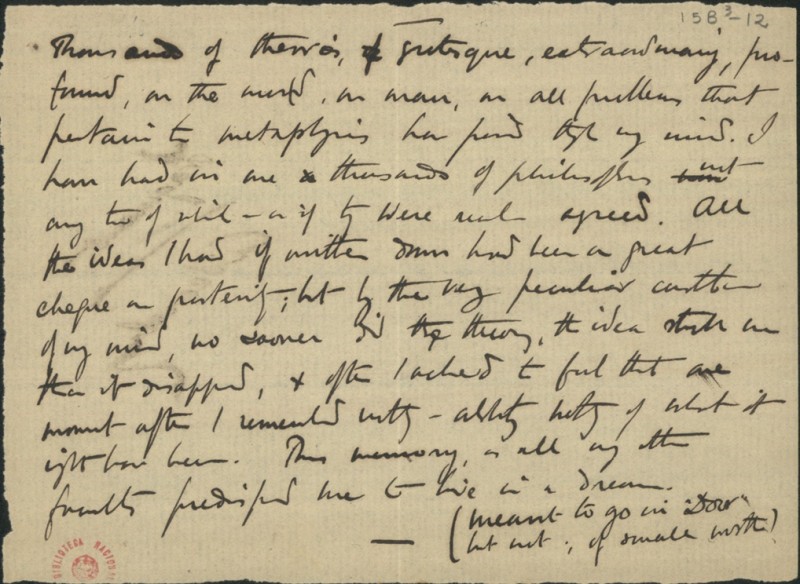 158³-12
Thousands of theories, grotesque, extraordinary, pro-
found, on the world, on man, on all problems that
pertain to metaphysics have passed through my mind. I
have had in me thousands of philosophies not
any two of which — as if they were real — agreed. All
the ideas I had if written down had been a great
cheque on posterity; but by the very peculiar constitution
of my mind, no sooner did the theory, the idea struck me
than it disappeared, & after I ached to feel that one
moment after I remembered nothing — absolutely nothing of what it
might have been. Thus memory, as all my other
faculties predisposed me to live in a dream.
(meant to go in "Door"
but not; of small worth)
BIBLIOTECA NACIONAL